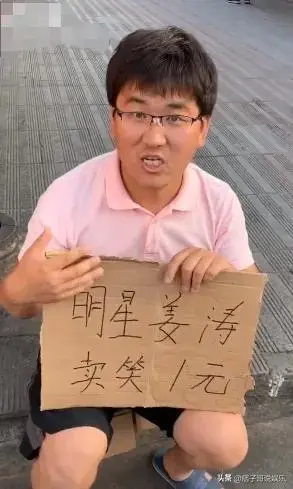 明星姜涛
卖笑1元
头条 @痞子哥说娱乐